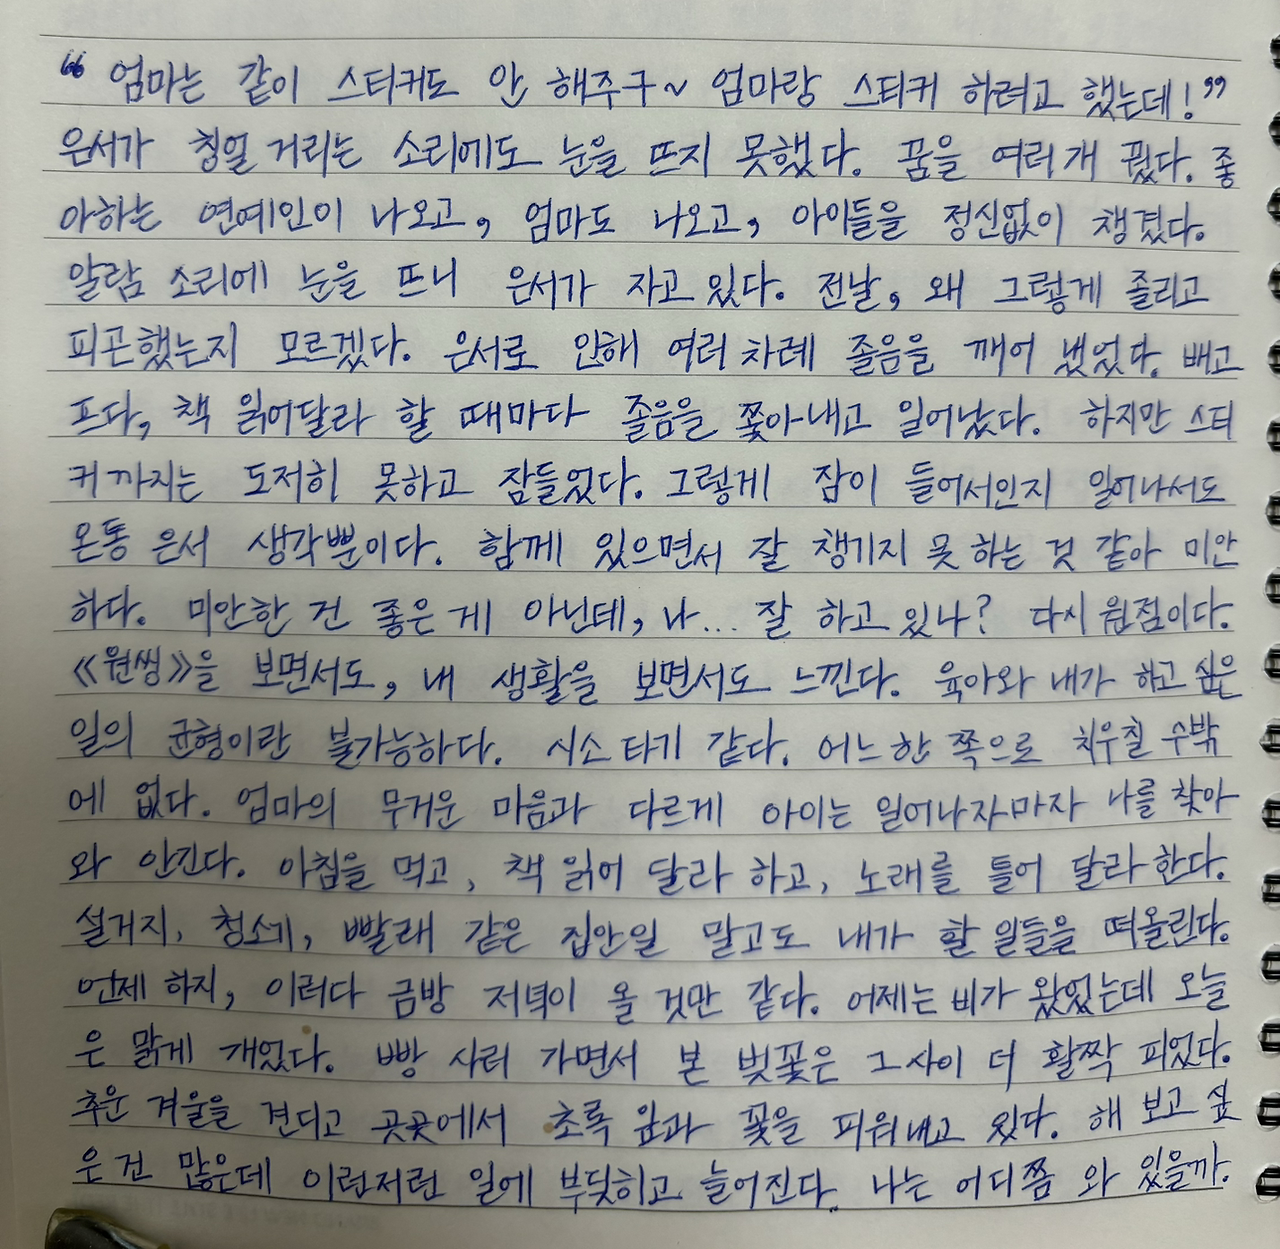 “엄마는 같이 스티커도 안 해주구~ 엄마랑 스티커 하려고 했는데!”
은서가 칭얼거리는 소리에도 눈을 뜨지 못했다. 꿈을 여러 개 꿨다. 좋
아하는 연예인이 나오고, 엄마도 나오고, 아이들을 정신없이 챙겼다.
알람 소리에 눈을 뜨니 은서가 자고 있다. 전날, 왜 그렇게 졸리고
피곤했는지 모르겠다. 은서로 인해 여러 차례 졸음을 깨어 냈었다. 배고
프다, 책 읽어달라 할 때마다 졸음을 쫓아내고 일어났다. 하지만 스티
커까지는 도저히 못하고 잠들었다. 그렇게 잠이 들어서인지 일어나서도
온통 은서 생각뿐이다. 함께 있으면서 잘 챙기지 못 하는 것 같아 미안
하다. 미안한 건 좋은 게 아닌데, 나... 잘 하고 있나? 다시 원점이다.
《원씽》을 보면서도, 내 생활을 보면서도 느낀다. 육아와 내가 하고 싶은
일의 균형이란 불가능하다. 시소 타기 같다. 어느 한 쪽으로 치우칠 수밖
에 없다. 엄마의 무거운 마음과 다르게 아이는 일어나자마자 나를 찾아
와 안긴다. 아침을 먹고, 책 읽어 달라 하고, 노래를 틀어 달라 한다.
설거지, 청소기, 빨래 같은 집안일 말고도 내가 할 일들을 떠올린다.
언제 하지, 이러다 금방 저녁이 올 것만 같다. 어제는 비가 왔었는데 오늘
은 맑게 개었다. 빵 사러 가면서 본 벚꽃은 그 사이 더 활짝 피었다.
추운 겨울을 견디고 곳곳에서 초록 잎과 꽃을 피워내고 있다. 해 보고 싶
은 건 많은데 이런저런 일에 부딪히고 늘어진다. 나는 어디쯤 와 있을까.